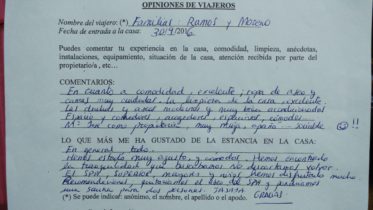 OPINIONES DE VIAJEROS
Nombre del viajero: (*) Familias: Ramos y Moreno
Fecha de entrada a la casa: 30/9/2016
Puedes comentar tu experiencia en la casa, comodidad, limpieza, anécdotas,
instalaciones, equipamiento, situación de la casa, atención recibida por parte del
propietario/a, etc...
COMENTARIOS:
En cuanto a comodidad, excelente, ropa de aseo y
camas muy cuidado. La limpieza de la casa excelente.
y aseos modernos y muy bien acondicionados
Espacio y comedores, acogedores, espaciosos, cómodos...
Mª José como propietaria, muy maja,
LO QUE MÁS ME HA GUSTADO DE LA ESTANCIA EN LA CASA:
En general todo.
Hemos estado muy a gusto, y comodos. Hemos encontrado
la tranquilidad que buscabamos
El SPA, SUPERIOR, mayores y niños hemos disfrutado mucho
Recomendaciones,
una sauna para dos personas. GRACIAS
(*) Se puede indicar: anónimo, el nombre, el apellido o el apodo.